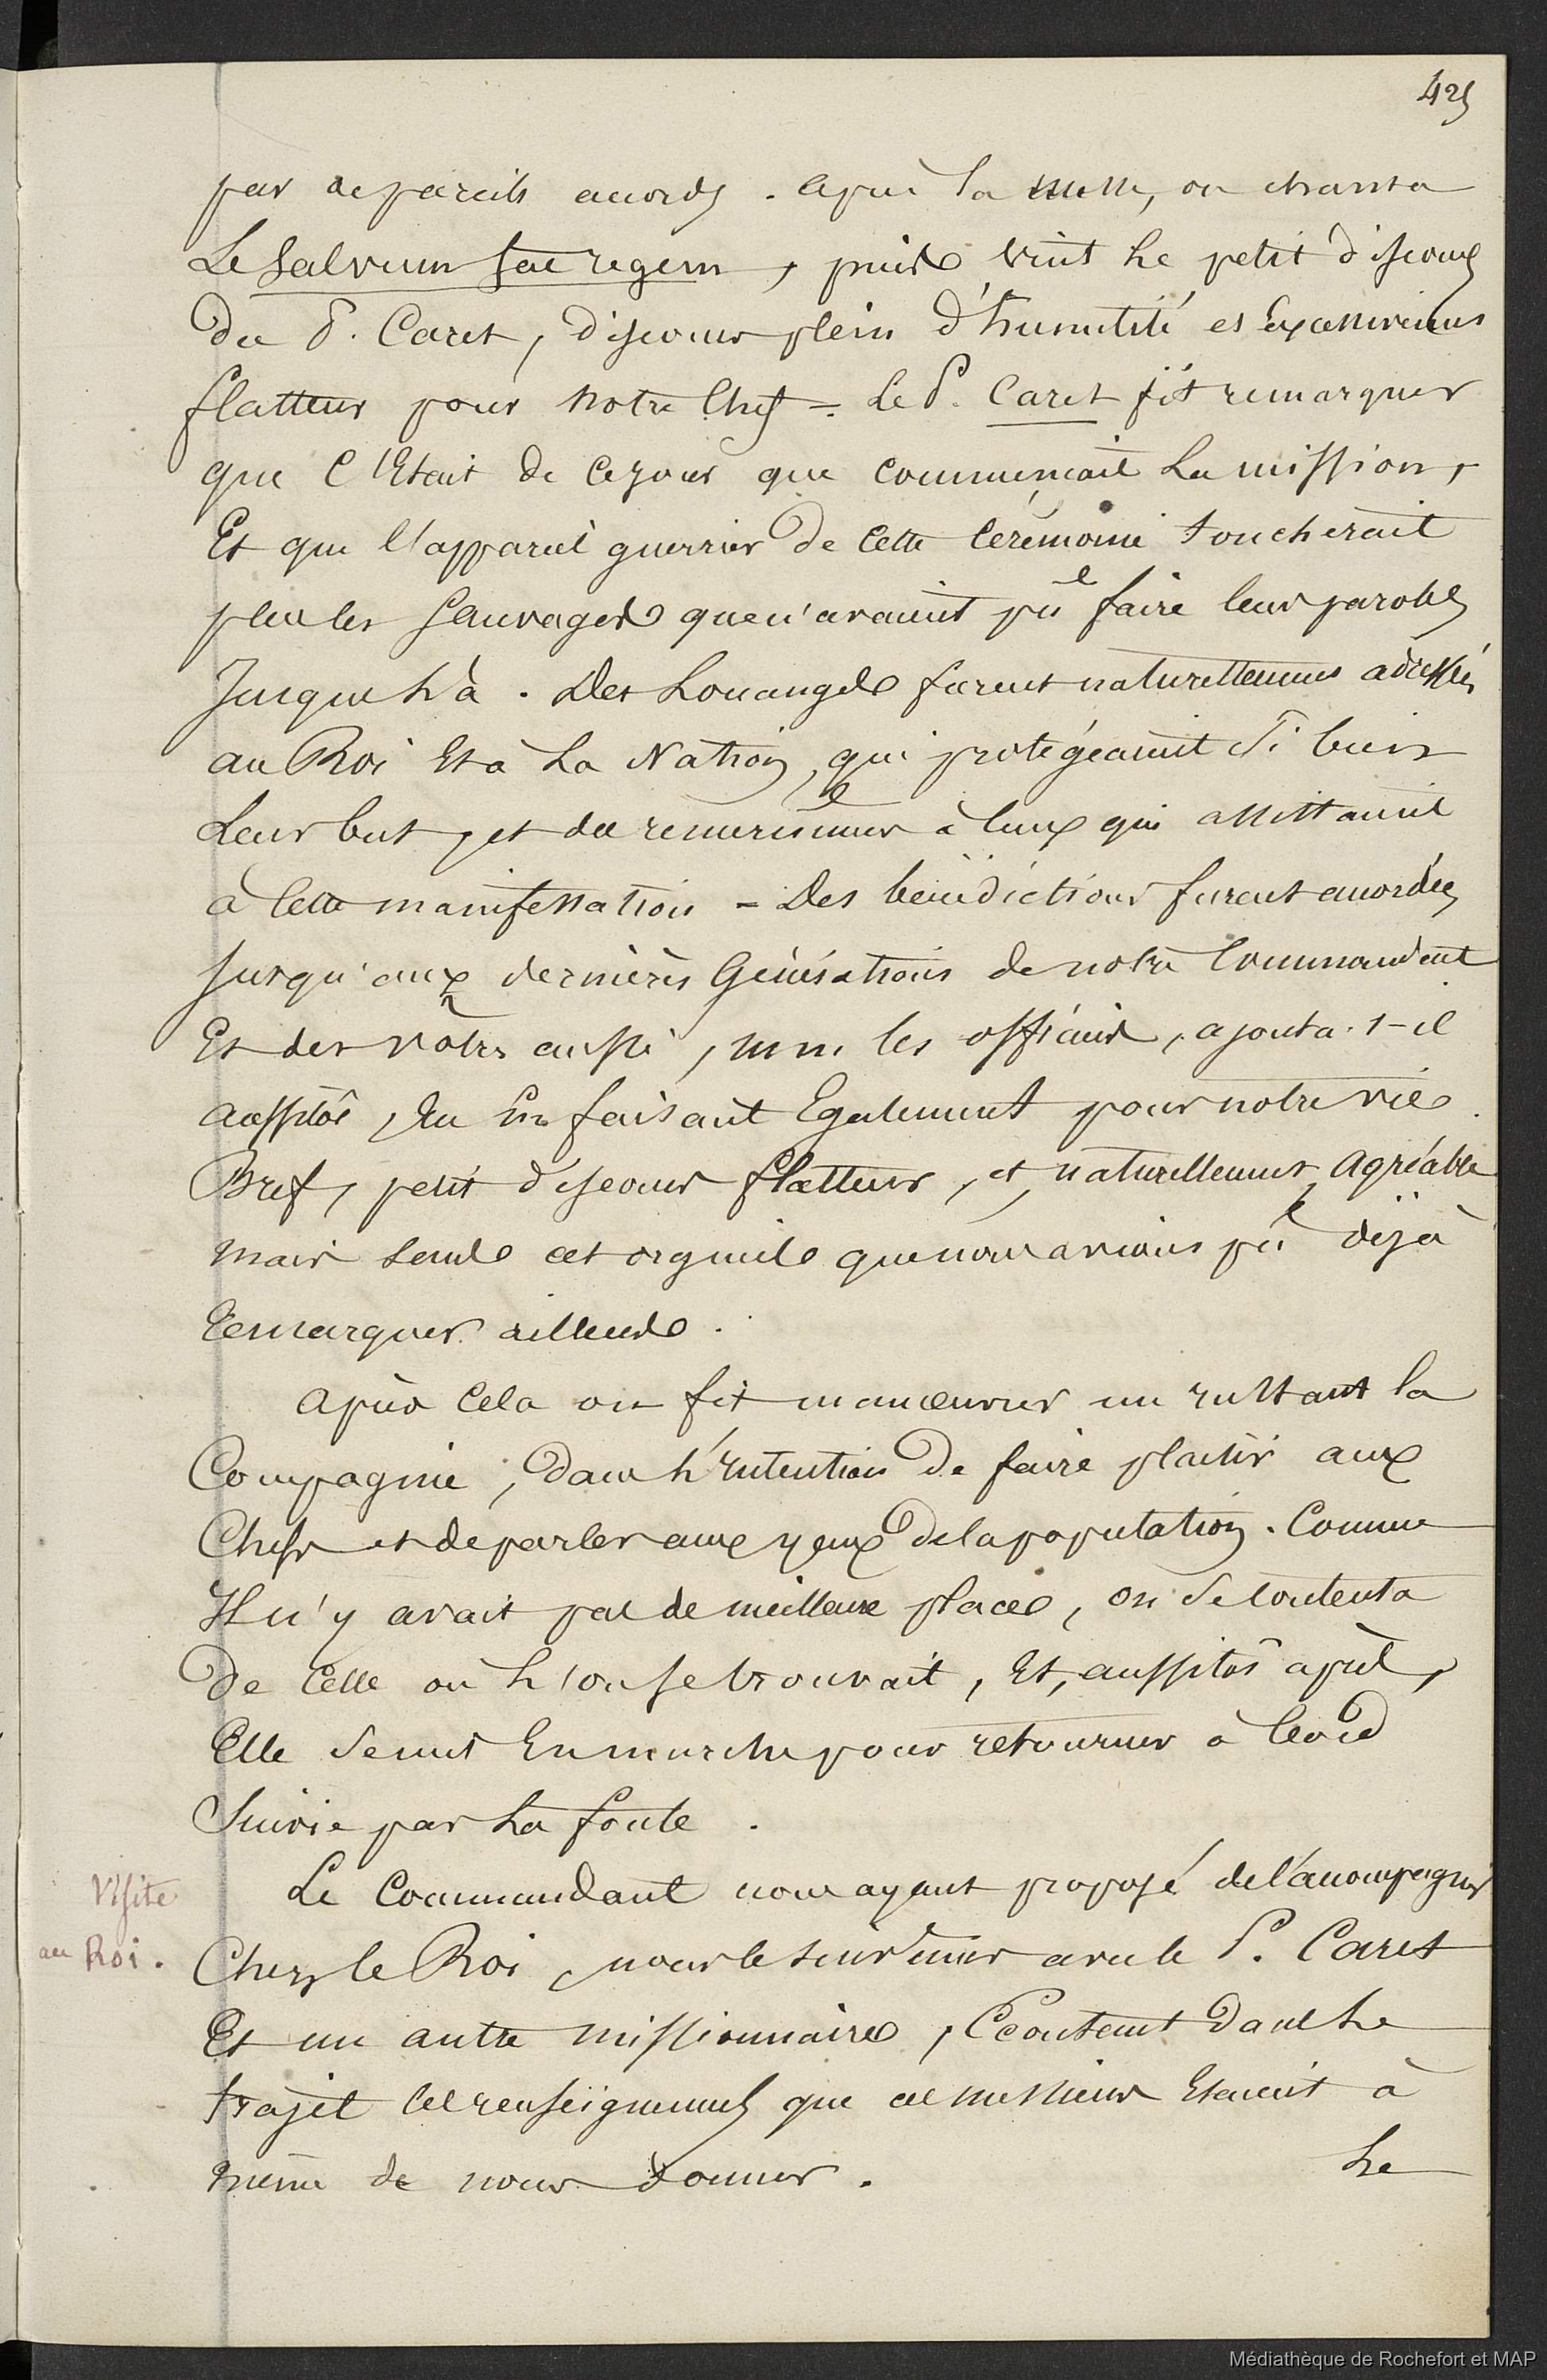 425
par de pareils accords . après la messe, on chanta
Le Salvum fac regem, puis vint le petit discours
du P. Caret, discours plein d'humilité et Excessivement
flatteur pour notre Chef = Le P. Caret fit remarquer
que C'Etait de ce jour que commençait la mission,
Et que l'appareil guerrier de cette Cérémonie toucherait
plus les Sauvages que n'avaient pû faire leurs paroles
Jusque là . Des Louanges furent naturellement adressées
au Roi Et à la Nation, qui protégeaient Si bien
Leur but, et des remerciemens à Ceux qui assistaient
à Cette manifestation = Des bénédictions furent accordées
Jusqu'aux dernières Générations de notre Commandant
Et des vôtres aussi, mm. les officiers, ajouta-t-il
aussitôt, En En faisant Egalement pour notre vie.
Bref, petit discours flatteur, et, naturellement, agréable
mais cet orgueil que nous avions pû déjà
Remarquer ailleurs.
Après Cela on fit manœuvrer un instant la
Compagnie, dans l'intention de faire plaisir aux
Chefs et de parler aux yeux de la population . Comme
Il n'y avait pas de meilleure place, on Se Contenta
De Celle où l'on se trouvait, Et, aussitôt après,
Elle Se mit En marche pour retourner à bord
Suivie par la foule .
Visite
au Roi.
Le Commandant nous ayant proposé de l'accompagner
Chez le Roi, nous le suivîmes avec le P. Caret
Et un autre missionnaire, Ecoutant dans le
trajet les renseignemens que ces messieurs Etaient à
même de nous donner .
Le
Médiathèque de Rochefort et MAP